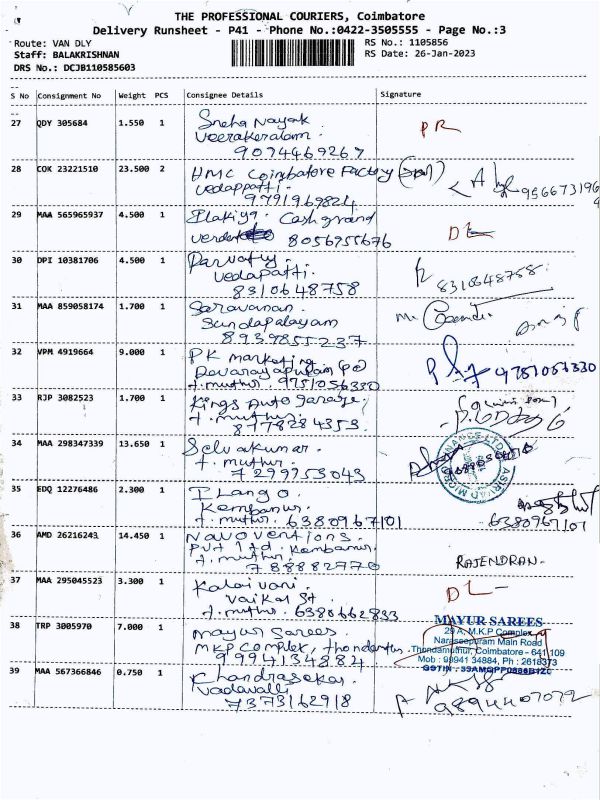 THE PROFESSIONAL COURIERS, Coimbatore
Delivery Runsheet - P41 - Phone No.:0422-3505555 - Page No.:3
Route: VAN DLY
RS No.: 1105856
Staff: BALAKRISHNAN
RS Date: 26-Jan-2023
DRS No.: DCJB110585603
S No Consignment No Weight PCS Consignee Details Signature
27 QDY 305684 1.550 1 Sneha Nayak PR
Veerakeralam.
9074469267
28 COK 23221510 23.500 2 HMC Coimbatore Factory
vedappatti. 
9791969824
29 MAA 565965937 4.500 1 Elakiya. Cash grand DL
8056955676
30 DPI 10381706 4.500 1 Parvathy. 8310648758
vedapatti.
8310648758
31 MAA 859058174 1.700 1 Saravanan.
Sundapalayam
8939855237
32 VPM 4919664 9.000 1 PK marketing 9751056330
Devarayapuram (po)
t. muthur. 9751056330
33 RJP 3082523 1.700 1 Kings Auto garage,
t. muthur.
8778284353.
34 MAA 298347339 13.650 1 Selvakumar.
t. muthur.
7299953043
35 EDQ 12276486 2.300 1 Ilango.
Kembanur. 6380967101
t. muthur. 6380967101
36 AMD 26216243 14.450 1 Navoventions.
Pvt ltd. Kembanur.
t. muthur. RAJENDRAN.
788882770
37 MAA 295045523 3.300 1 Kalaivani. DL
Vaikal St.
t. muthur. 6380662833
38 TRP 3005970 7.000 1 Mayur Sarees. MAYUR SAREES
MKP Complex, thondamtur. 29 A, M.K.P Complex
9994134884 Naraseepuram Main Road
Thondamuthur, Coimbatore - 641 109
Mob : 99941 34884, Ph : 2618373
39 MAA 567366846 0.750 1 Chandrasekar.
Vadavalli 9894407072
7373162918